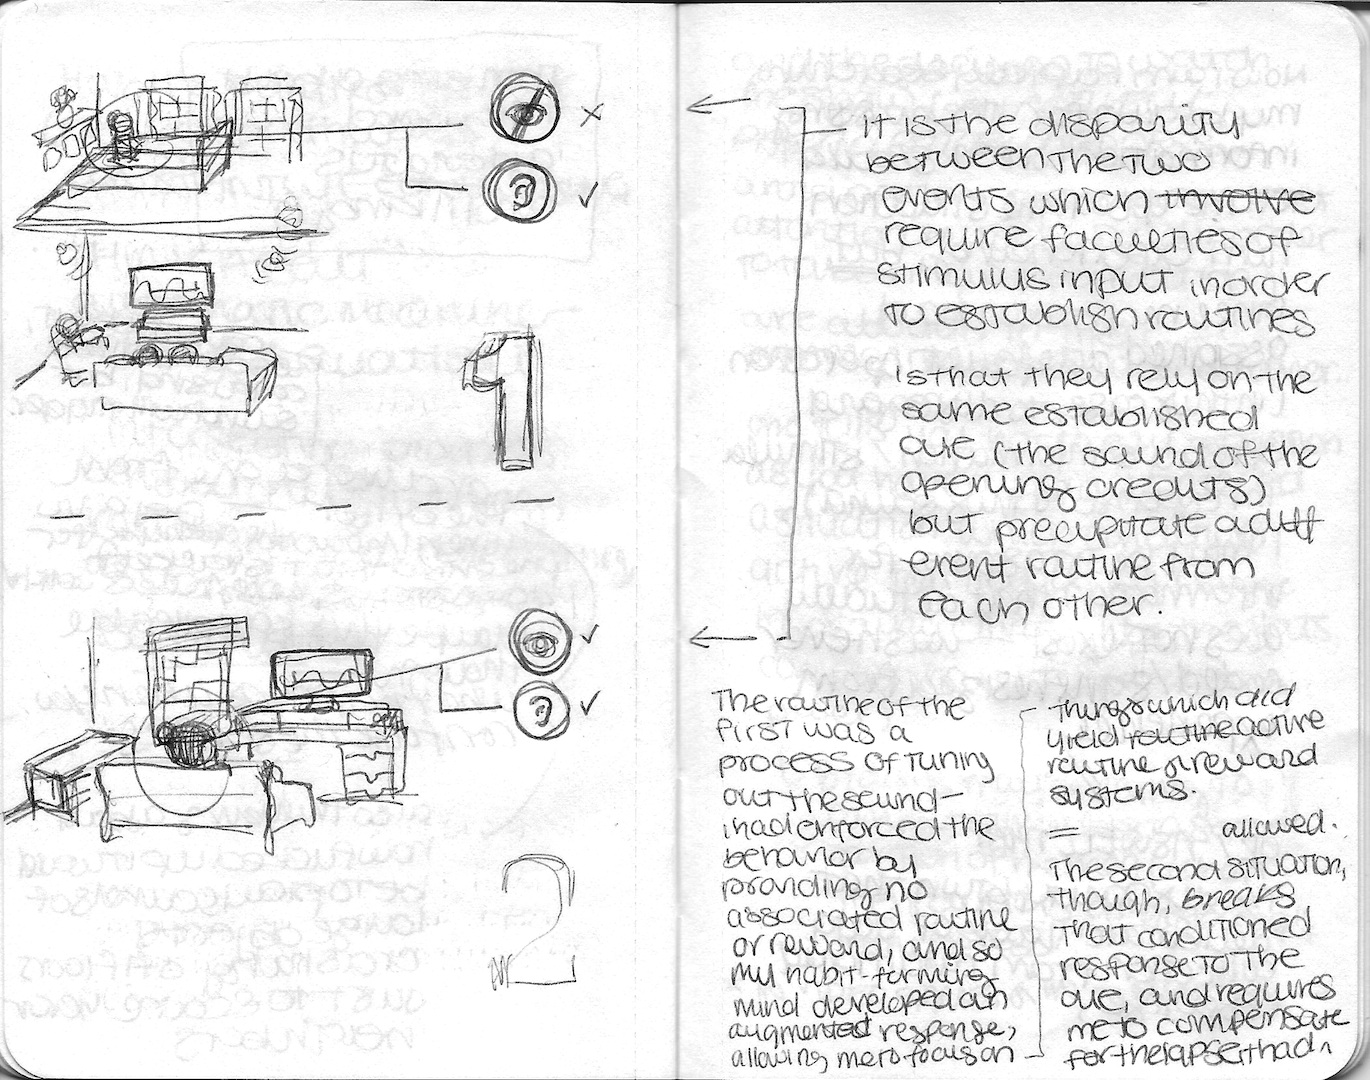 1
2
It is the disparity
between the two
events which involve
require faculties of
stimulus input in order
to establish routines
is that they rely on the
same established
cue (the sound of the
opening credits)
but precipitate a diff
erent routine from
each other.
The routine of the
first was a
process of tuning
out the sound—
i had enforced the
behavior by
providing no
associated routine
or reward, and so
my habit-forming
mind developed an
augmented response,
allowing me to focus on
things which did
yield routine active
routine & reward
systems.
= allowed.
The second situation,
though, breaks
that conditioned
response to the
cue, and requires
me to compensate
for the lapse it had ^